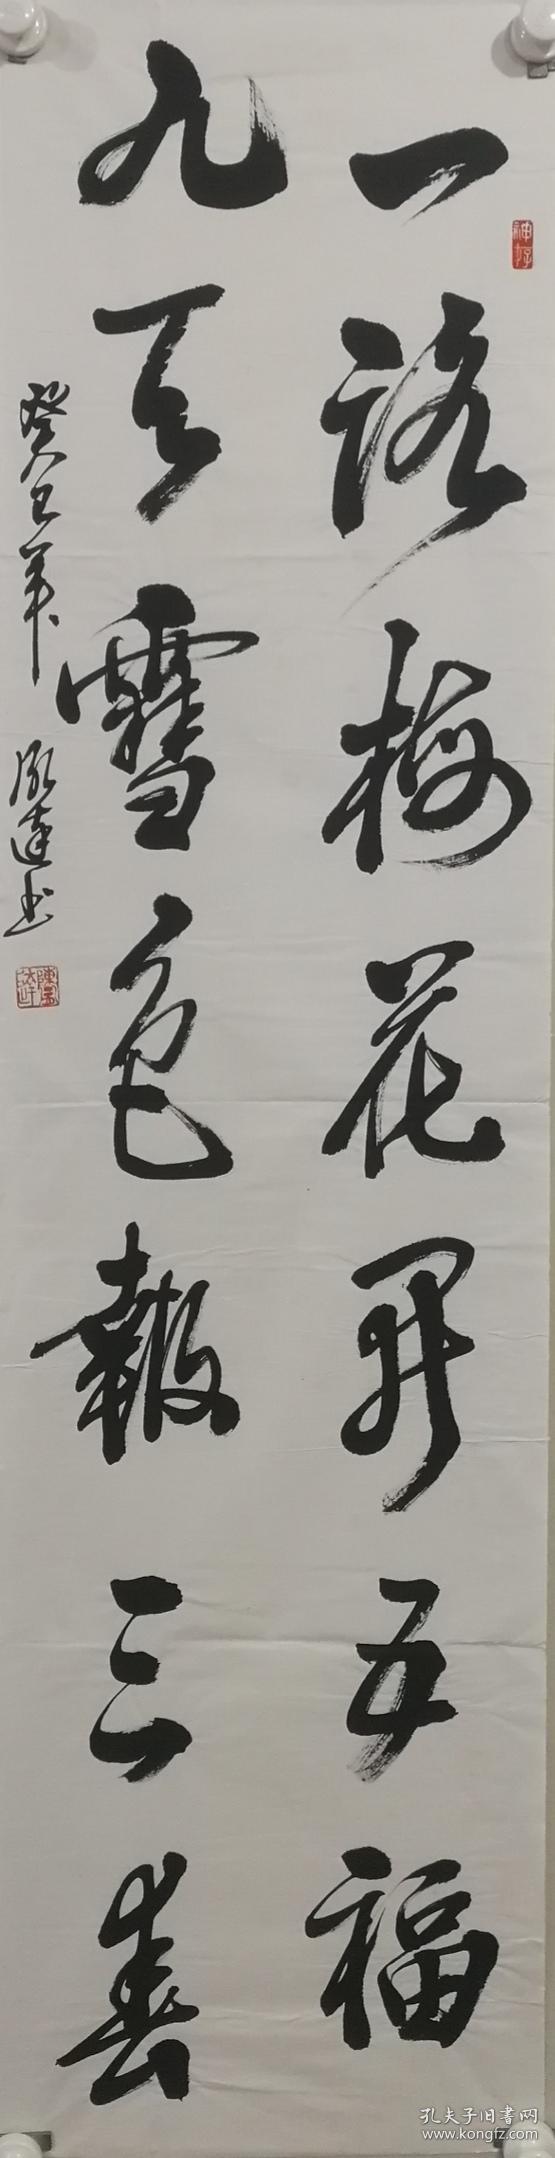 一路梅花开五福
九天雪色報三春
癸巳年
承達书
孔夫子旧书网
www.kongfz.com